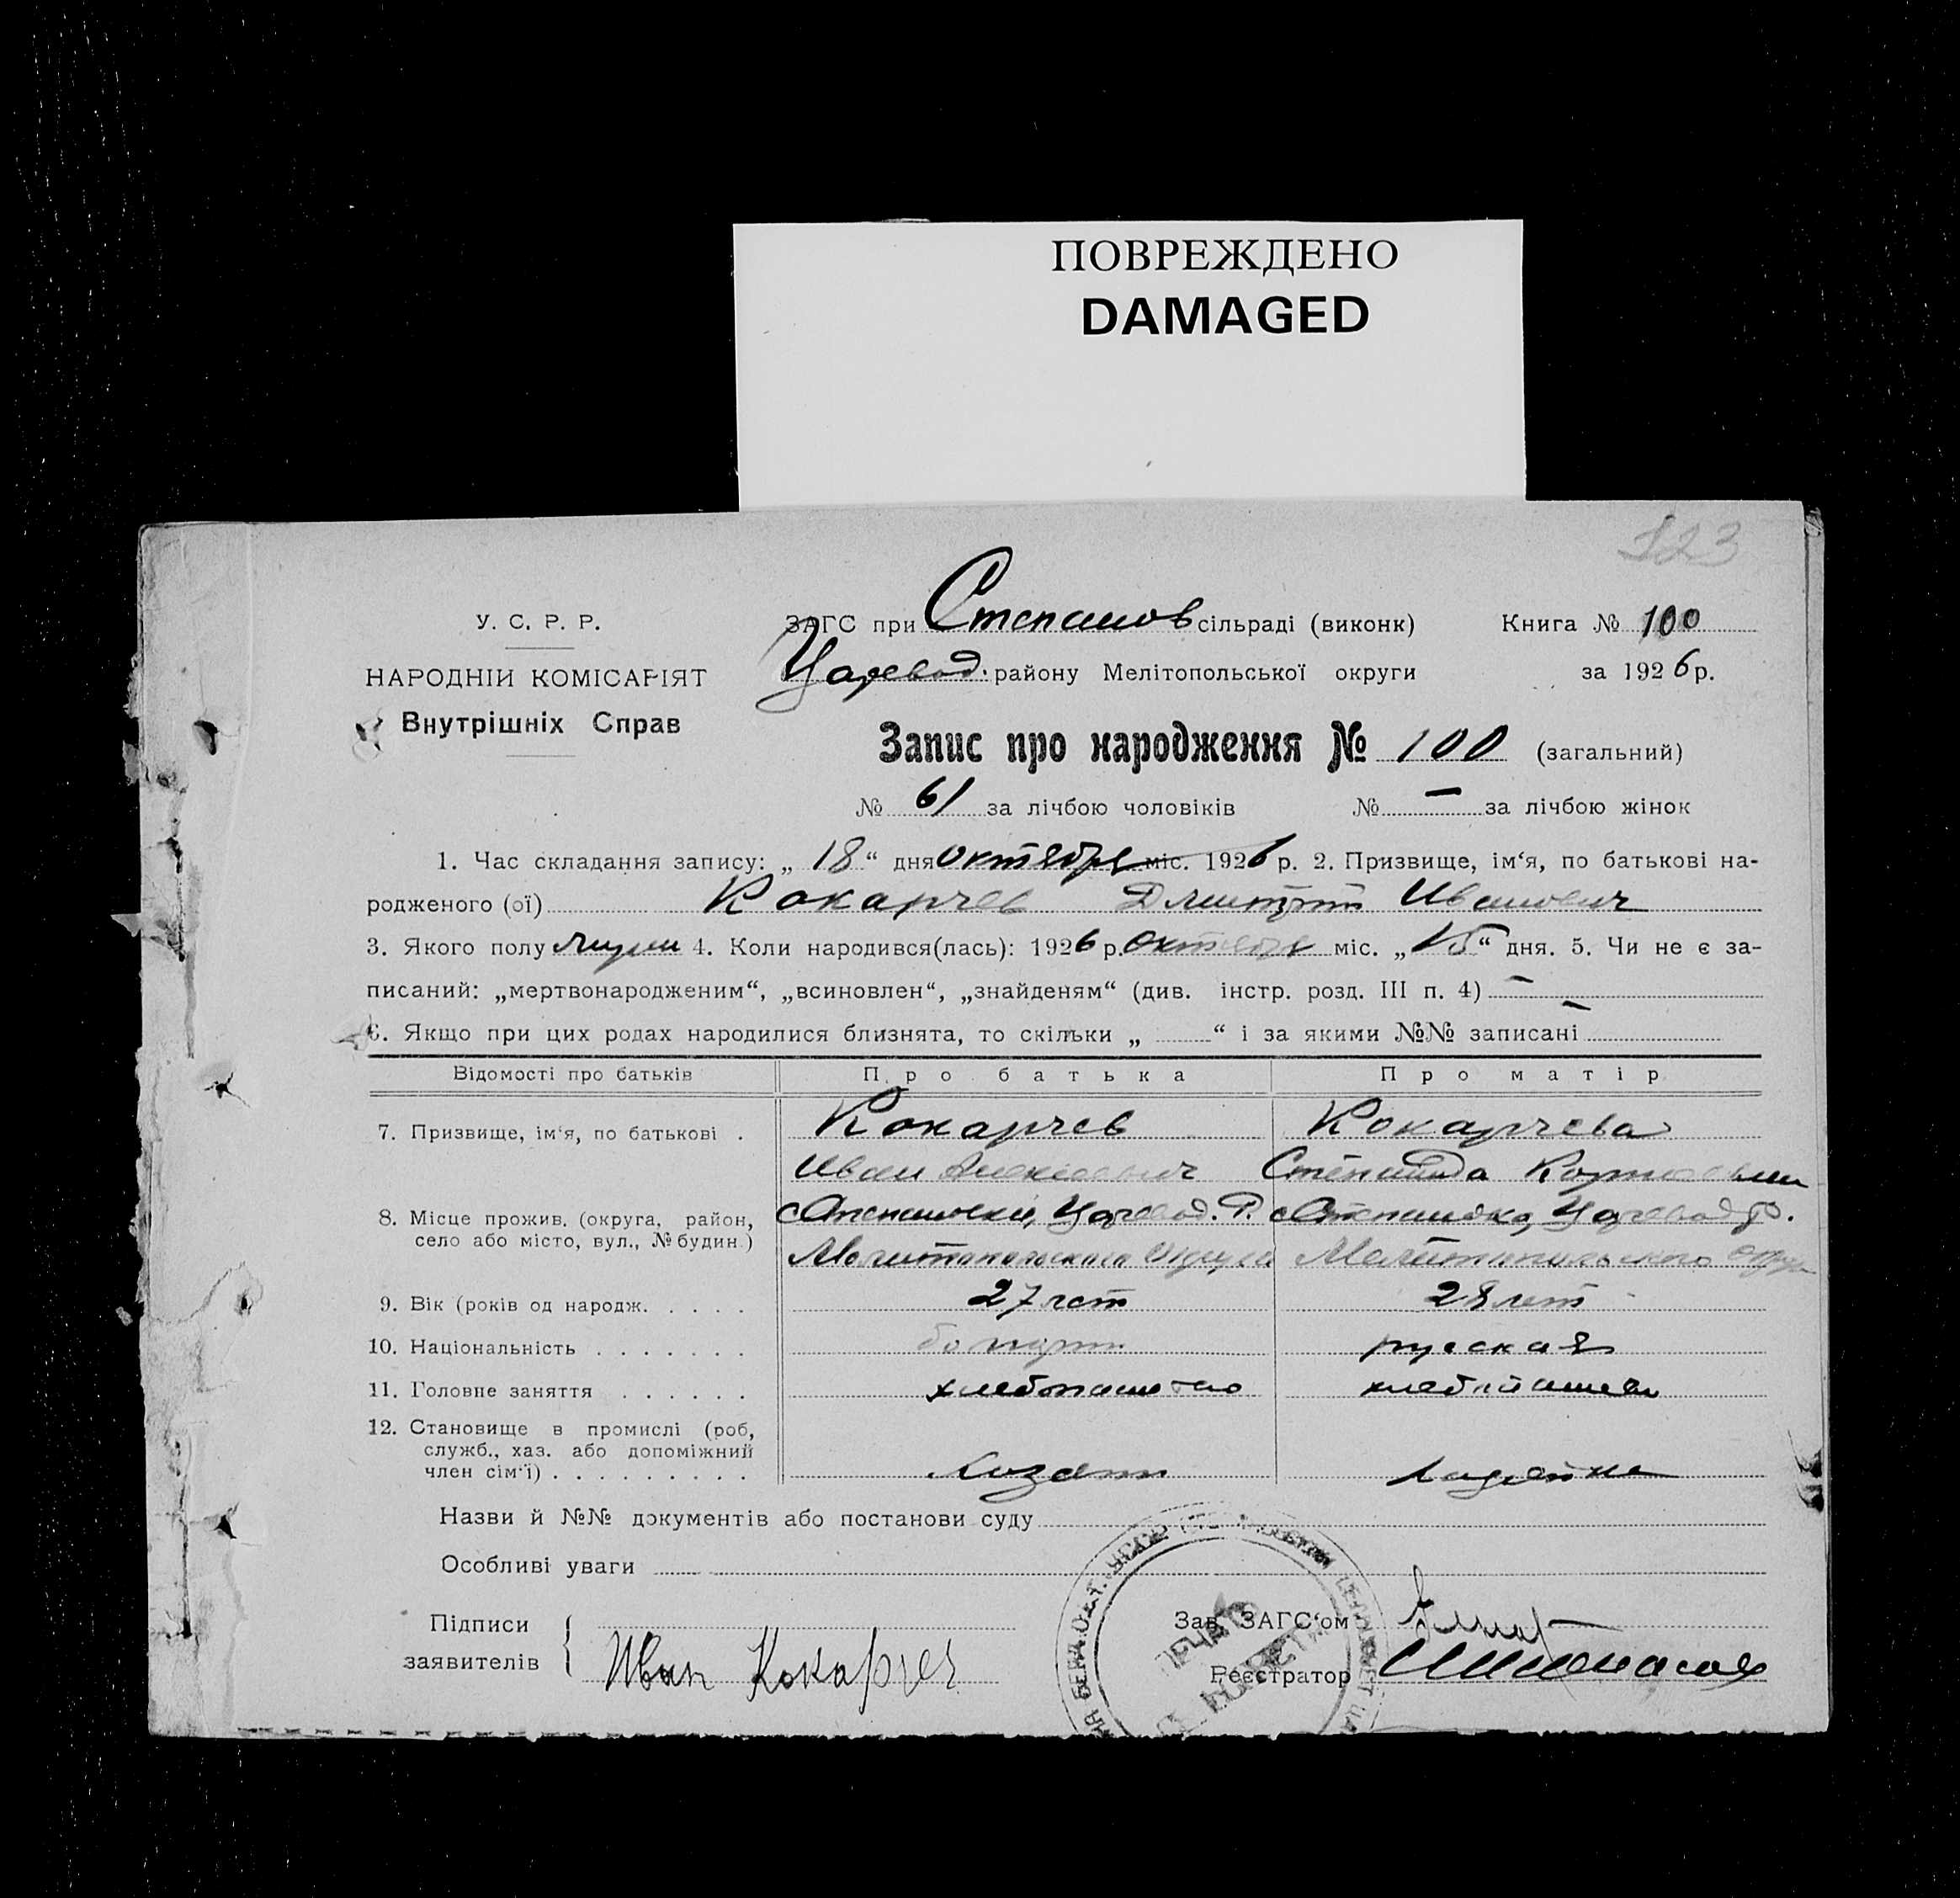 ПОВРЕЖДЕНО
DAMAGED
123
У. С. Р. Р.
ЗАГС при Степанов сільраді (виконк) Книга № 100
НАРОДНІЙ КОМІСАРІЯТ
Царевод. району Мелітопольської округи за 1926 р.
Внутрішніх Справ
Запис про народження № 100 (загальний)
№ 61 за лічбою чоловіків № — за лічбою жінок
1. Час складання запису: „ 18 “ дня октября міс. 1926 р. 2. Призвище, ім‘я, по батькові на-
родженого (ої) Кокарчев Дмитрий Иванович
3. Якого полу мужч 4. Коли народився(лась): 1926 р. октября міс. „ 15 “ дня. 5. Чи не є за-
писаний: „мертвонародженим“, „всиновлен“, „знайденям“ (див. інстр. розд. III п. 4) —
6. Якщо при цих родах народилися близнята, то скільки „ “ і за якими №№ записані —
Відомості про батьків Про батька Про матір
7. Призвище, ім‘я, по батькові . Кокарчев Кокарчева
Иван Алексеевич Степанида
8. Місце прожив. (округа, район, с Степановки, Царевод. Р. с Степановка, Царевод р.
село або місто, вул., № будин.) Мелитопольского Округа Мелитопольского округа
9. Вік (років од народж. . . . . 27 лет 28 лет
10. Національність . . . . . . . русская
11. Головне заняття . . . . . . хлебопашество
12. Становище в промислі (роб,
служб., хаз. або допоміжний
член сім‘ї) . . . . . . . . . хозяин
Назви й №№ документів або постанови суду
Особливі уваги
Підписи Зав. ЗАГС‘ом
заявителів Иван Кокарчев Реєстратор